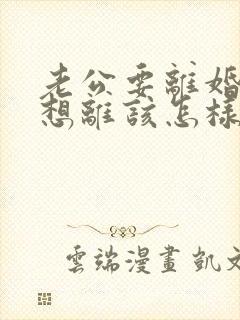 老公要離婚
想離該怎樣
雲端漫畫 凱文